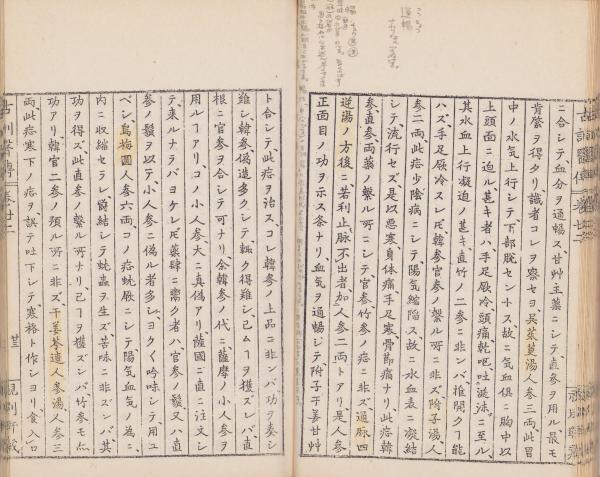 ニ合シテ、血分ヲ通暢ス、甘草主薬ニシテ、直参ヲ用ル、最モ
肯綮ヲ得タリ、識者コレヲ察セヨ、呉茱萸湯、人参三両、此胃
中ノ水気上行シテ、下部脱セントス、故ニ気血倶ニ胸中以
上頭面ニ迫ル、甚キ者ハ、手足厥冷、頭痛、乾嘔、吐涎沫ニ至ル、
其水血上行凝迫ノ甚キ、直竹ノ二参ニ非ンバ、推開クヿ能
ハズ、手足厥冷スレ𪜈、韓参官参ノ繋ル所ニ非ズ、附子湯、人
参二両、此症少陰病ニシテ、陽気縮陥ス、故ニ水血表ニ凝結
シテ、流行セズ、是以悪寒、身体痛、手足寒、骨節痛ナリ、此症韓
参直参両薬ノ繋ル所ニシテ、官参竹参ノ症ニ非ズ、通脉四
逆湯ノ方後ニ、若利止脉不出者、加人参二両トアリ、是人参
正面目ノ功ヲ示ス条ナリ、血気ヲ通暢シテ、附子干姜甘草
ト合シテ、此症ヲ治ス、コレ韓参ノ上品ニ非ンバ、功ヲ奏シ
難シ、韓参偽造多クシテ、輙ク得難シ、已ムヿヲ獲ズンバ、直
根ニ官参ヲ合シテ可ナリ、余韓参ノ代ニ、薩摩ノ小人参ヲ
用ルヿアリ、コノ小人参大ニ真偽アリ、薩國ニ直ニ注文シ
テ、来ルナラバヨケレ𪜈、薬肆ニ鬻ク者ハ、官参ノ鬚、又ハ直
参ノ鬚ヲ以テ、小人参ニ偽ル者多シ、ヨク〱吟味シテ、用ユ
ベシ、烏梅圓、人参六両、コノ症蚘厥ニシテ、陽気血気ノ為ニ、
内ニ収縮セラレ、欝結シテ蚘蟲ヲ生ズ、苦味ニ非ンバ、其
功ヲ得ズ、此直参ノ繋ル所ナリ、已ムヿヲ獲ズンバ、竹参モ亦
功アリ、韓官二参ノ預ル所ニ非ズ、干姜芩連人参湯、人参三
両、此症寒下ノ症ヲ、誤テ吐下シテ、寒格ト作シヨリ、食入口